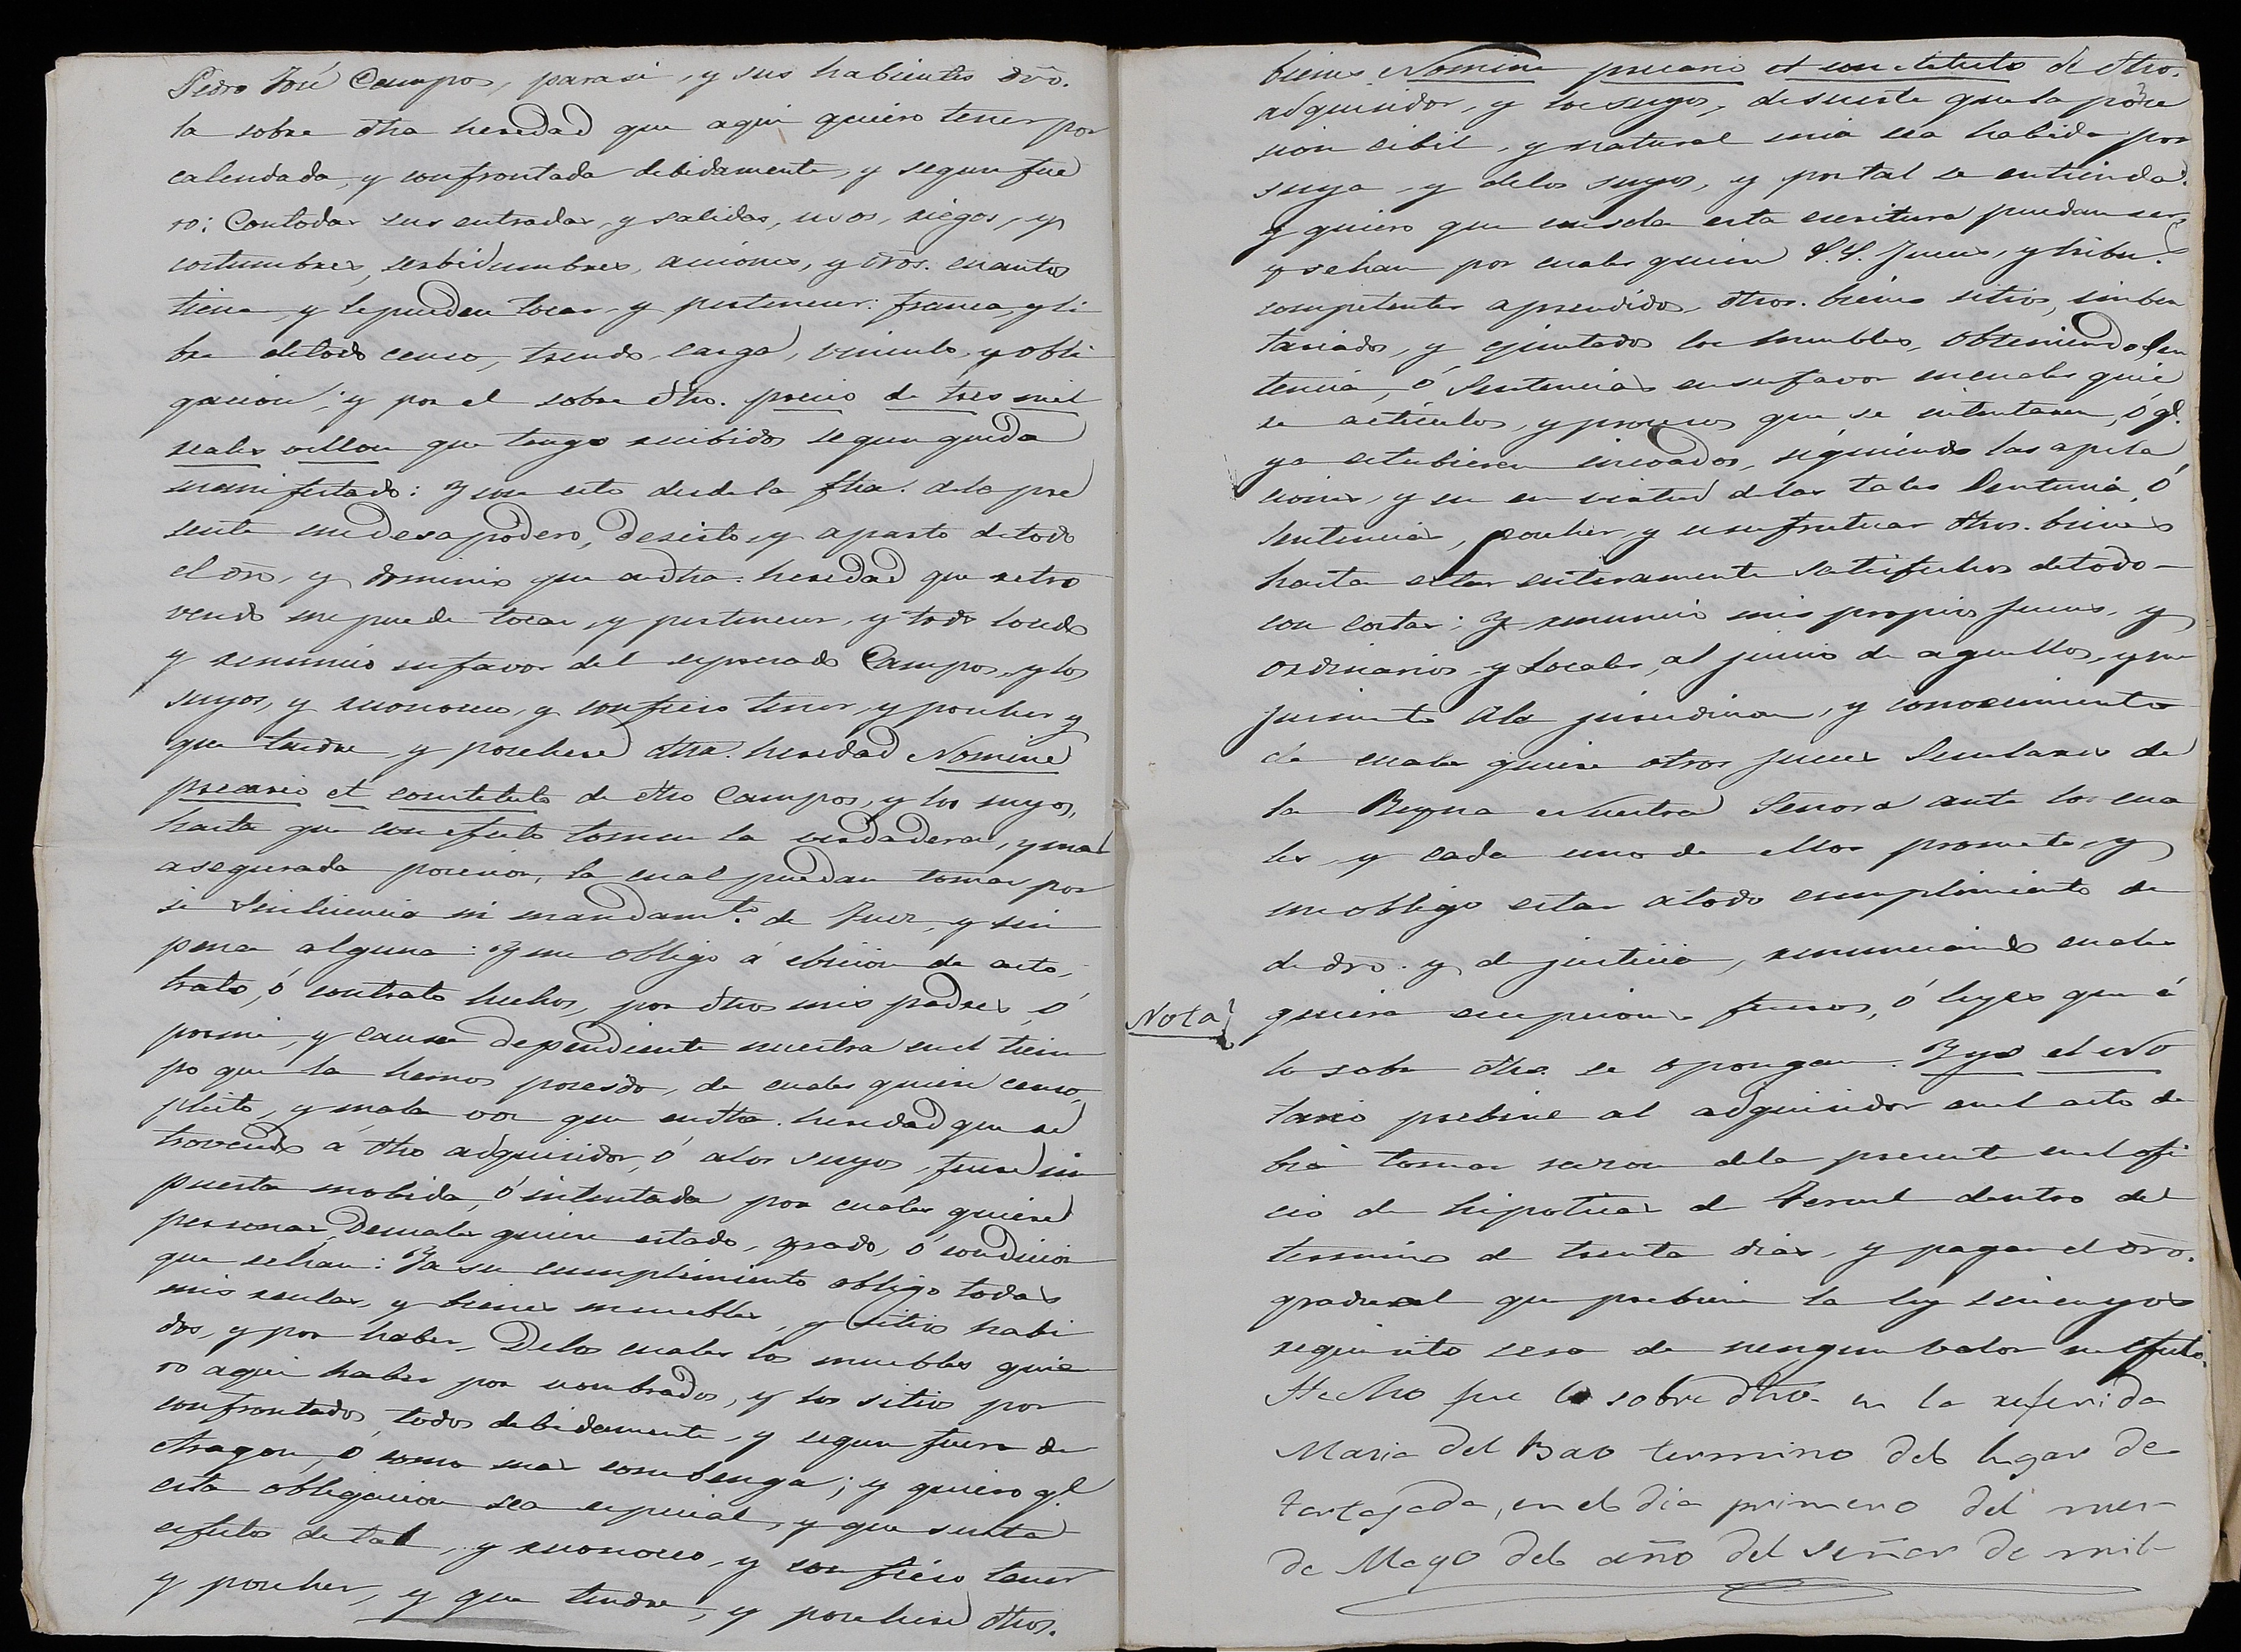 Pedro José Campos, parasi, y sus habientes dro.
la sobre dha heredad que aqui quiero tener por
calendada, y confrontada debidamente, y segun fue
ro: Contodas sus entradas, y salidas, usos, riegos, y
costumbres, serbidumbres, aciones, y dros. cuantos
tiene, y lepueden tocar y pertenecer: franca, y li
bre detodo censo, treudo, carga, vinculo, y obli
gacion; y por el sobre dho. precio de tres mil
reales vellon que tengo recibidos segun queda
manifestado: Y con esto desde la fha. dela pre
sente medesapodero, desisto, y aparto detodo
el dro, y dominio que adha. heredad que retro
vendo me puede tocar, y pertenecer, y todo locedo
y renuncio enfavor del espresado Campos, y los
suyos, y reconozco, y confieso tener, y poseher y
que tendre, y posehere dha. heredad Nomine
precario et constituto de dho Campos, y los suyos,
hasta que con efecto tomen la verdadera, y mas
asegurada posesion, la cual puedan tomar por
si Sinlicencia ni mandamto. de Juez, y sin
pena alguna: Y me obligo á ebicion de acto,
trato, ó contrato hechos, por dhos mis padres, ó
pormi, y causa dependiente nuestra enel tiem
po que la hemos poseido, de cuales quiere censo,
pleito, y mala voz que endha. heredad que re
trovendo á dho adquisidor, ó alos suyos, fuere im
puesta mobida, ó intentada por cuales quiere
personas Decuales quiere estado, grado, ó condicion
que sehan: Ya su cumplimiento obligo todas
mis rentas, y bienes muebles, y sitios habi
dos, y por haber, Delos cuales los muebles quie
ro aqui haber por nombrados, y los sitios por
confrontados todos debidamente, y segun fuero de
Aragon, ó como mas combenga; y quiero ql.
esta obligacion sea especial, y que surta
efecto de tal, y reconozco, y confieso tener
y poseher, y que tendre, y posehere dhos.
bienes Nomine precario et constituto de dho.
adquisidor, y los suyos, desuerte que la pose
sion cibil, y natural mia sea habida por
suya, y delos suyos, y por tal se entienda:
y quiero que consola esta escritura puedan ser,
y sehan por cuales quiera S.S. Jueces, y tribu.
competentes aprendidos, dhos. bienes sitios, imben
tariados, y ejecutados los muebles, obteniendo Sen
tencia, ó Sentencias ensufavor encuales quie
re articulos, y procesos que se intentaren, ó ql.
ya estubieren incoados, siguiendo las apela
ciones, y en su virtud delas tales Sentencia, ó
Sentencias, poseher, y usufrutuar dhos. bienes
hasta estar enteramente satisfechos detodo
con costas: Y renuncio mis propios Jueces,
ordinarios y Locales, al juicio de aquellos, y me
jusmeto ala jurisdicion, y conocimiento
de cuales quiere otros Jueces Seculares de
la Reyna Nuestra Señora ante los cua
les, y cada uno de ellos prometo, y
meobligo estar átodo cumplimiento de
de dro. y de justicia, renunciando cuales
Nota quiera escepciones fueros, ó leyes que á
lo sobre dho. se opongan. Y yo el No
tario prebine al adquisidor enel acto de
bia tomar razon dela presente enel ofi
cio de hipotecas de Teruel dentro del
termino de treinta dias, y pagar el dro.
gradual que prebiene la ley sincuyos
requisito sera de nengun balor ni efecto.
Hecho fue lo sobre dho. en la referida
Maria del Bao termino del lugar de
tortajada, en el dia primero del mes
de Mayo del año del señor de mil